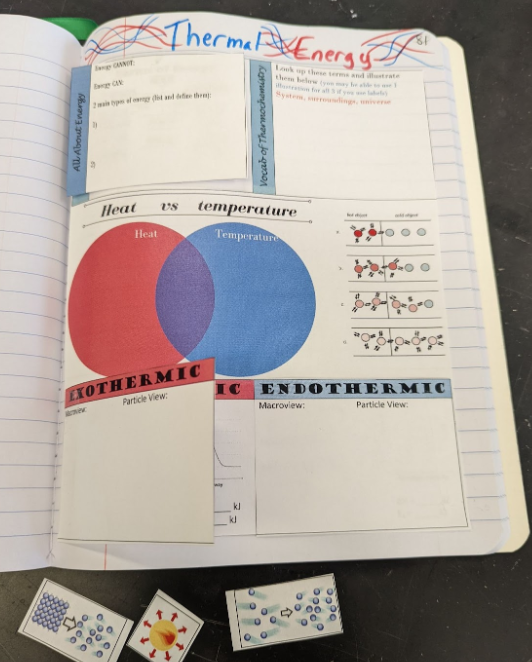 Thermal Energy
81
All About Energy
Energy CANNOT:
Energy CAN:
2 main types of energy (list and define them):
1)
2)
Vocab of Thermochemistry
Look up these terms and illustrate
them below (you may be able to use 1
illustration for all 3 if you use labels):
System, surroundings, universe
Heat vs temperature
Heat
Temperature
Hot object
cold object
EXOTHERMIC
Macroview:
Particle View:
IC
kJ
kJ
ENDOTHERMIC
Macroview:
Particle View: